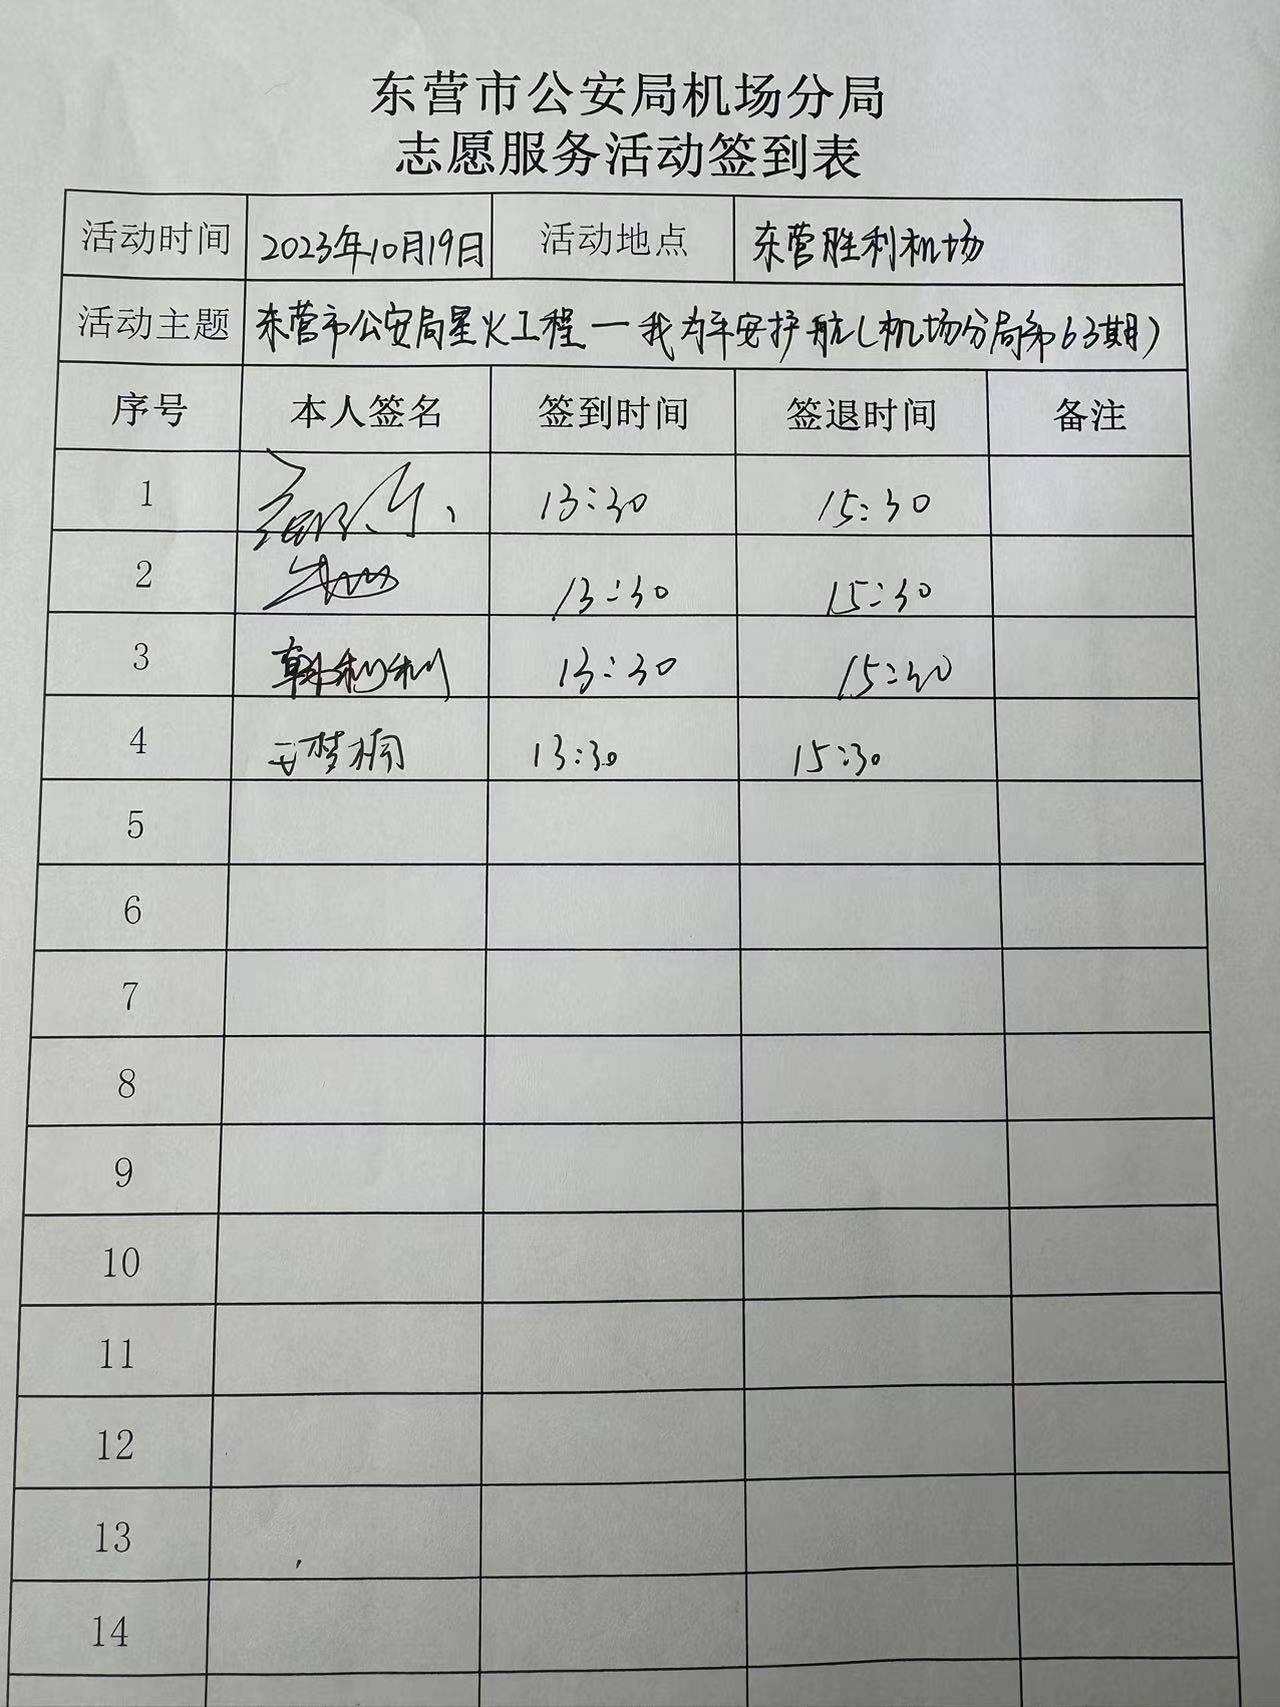 东营市公安局机场分局
志愿服务活动签到表
活动时间 2023年10月19日 活动地点 东营胜利机场
活动主题 东营市公安局星火工程一我为平安护航(机场分局第63期)
序号 本人签名 签到时间 签退时间 备注
1 13:30 15:30
2 13:30 15:30
3 韩利利 13:30 15:30
4 梦桐 13:30 15:30
5
6
7
8
9
10
11
12
13
14